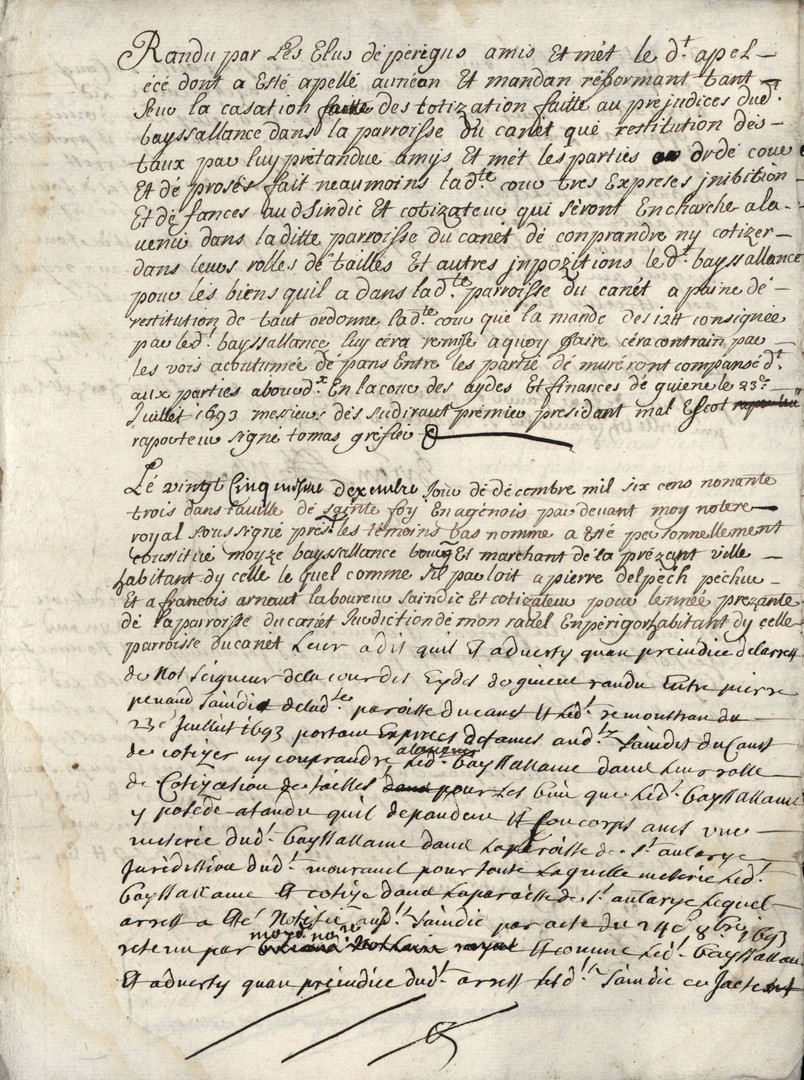 Randu par Les Elus de perigus amis Et mét le d.t apel –
écé dont a Esté apellé au néan Et mandan réformant tant –
Seur la casation des totization faitte au préjudices dud.t
bayssallance dans la parroisse du canét qué restitution dés –
taux par luy prétandue amis Et mét les parties dé cour
Et dé prosés fait néaumoins lad.te cour tres Expreses jnibition
Et dé fances aud Sindic Et cotizateur qui séront En charche a la –
venir dans laditte parroisse du canét dé conprandre ny cotizer –
dans leurs rolles dé tailles Et autres jnpozitions le d.t bayssallance
pour lés biens quil a dans lad.te parroisse du canét a paine dé –
réstitution dé taut ordonne lad.te cour qué la mande des 12tt consignée
par led.t bayssallance luy céra remise a quoy faire céra contrain par
les vois acoutumée dé pans Entre les partie dé muréront companse d.t
aux parties En la cour des aydes Et finances dé guiene le 23e
Juillet 1693 messieurs dés sudiraut prémier présidant mal Escot
raporteur signé tomas gréfier
Lé vingt cinquiesme Jour dé décembre mil six cens nonante
trois dans la ville de sainte foy En agénois par déuant moy notere
royal soussigné prés.t les témoins bas nomme a esté pérsonnellement
constitué moyze bayssallance bourg. Et marchant dé la prézant ville –
habitant dy celle le quel comme Il parloit a pierre delpéch péchur –
Et a francois arnaut laboureur saindic Et cotizateur pour lennéé prézante
dé la parroisse du canét Jurdiction dé mon ravel En périgor habitant dy celle
parroisse du canét Leur a dit quil Et aduerty quan préjudice délarrest
de Not Seigneur de la cour des Eydes de guiene randu Entre pierre
penaud saindic de lad.te paroisse du canet Et led.t remonstran du
23e Juillet 1693 portant Expresses defances aud.ts saindic du Canet
de cotizer ny conprandre alauenir led.t bayssallance dans leur rolle
de Cotization de tailles pour les bien que led.t bayssallance
y posede atandu quil dépandent Et son corps auec une
méterie dud.t bayssallance dans la paroisse de s.t aularye
Juridiction dud.t mouravel pour toute laquelle meterie led.t
bayssallance Et cotizé dans la paroisse de s.t aularye lequel
arrest a Eté Notifié aud.t saindic par acte du 24e 8bre 1693
retenu par moyd. no.re Et comme led.t bayssallance
Et aduerty quan préjudice dud.t arrest led.t saindic